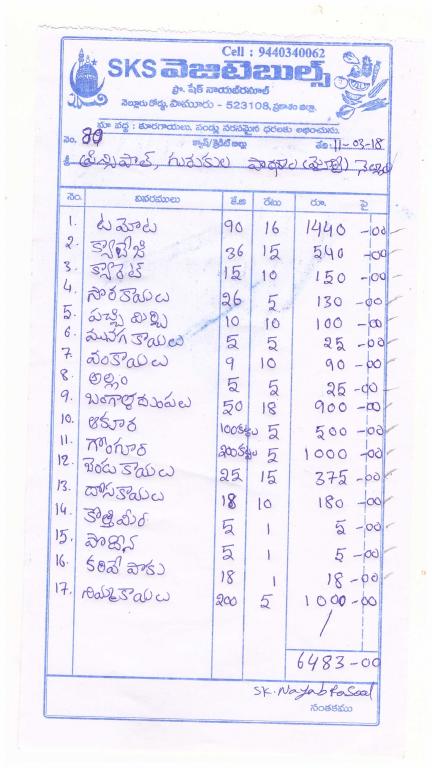 Cell : 9440340062
SKS వెజిటెబుల్స్
ప్రొ. షేక్ నాయబ్‌రసూల్
నెల్లూరు రోడ్డు, పామూరు - 523108, ప్రకాశం జిల్లా.
మా వద్ద : కూరగాయలు, పండ్లు సరసమైన ధరలకు లభించును.
నెం. 80 క్యాష్/క్రెడిట్ బిల్లు తేది 11-03-18
శ్రీ ప్రిన్సిపాల్, గురుకుల నెల్లూరు
నెం. వివరములు కే.జి రేటు రూ. పై
1. టమోట 90 16 1440 -00
2. క్యాబేజి 36 15 540 -00
3. క్యారెట్ 15 10 150 -00
4. సొరకాయలు 26 5 130 -00
5. పచ్చిమిర్చి 10 10 100 -00
6. మునగకాయలు 5 5 25 -00
7. వంకాయలు 9 10 90 -00
8. అల్లం 5 5 25 -00
9. బంగాళదుంపలు 50 18 900 -00
10. ఆకూర 100కట్టలు 5 500 -00
11. గోంగూర 200కట్టలు 5 1000 -00
12. బెండుకాయలు 25 15 375 -00
13. దోసకాయలు 18 10 180 -00
14. కొత్తిమీర 5 1 5 -00
15. పొదీన 5 1 5 -00
16. కరివేపాకు 18 1 18 -00
17. నిమ్మకాయలు 200 5 1000 -00
6483 -00
SK. Nayab Rasool
సంతకము